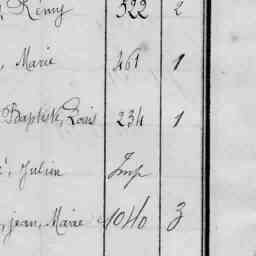 , Rémy 522 2
, Marie 261 1
Baptiste, Louis 234 1
, Julien Imp
, jean, Marie 1040 3